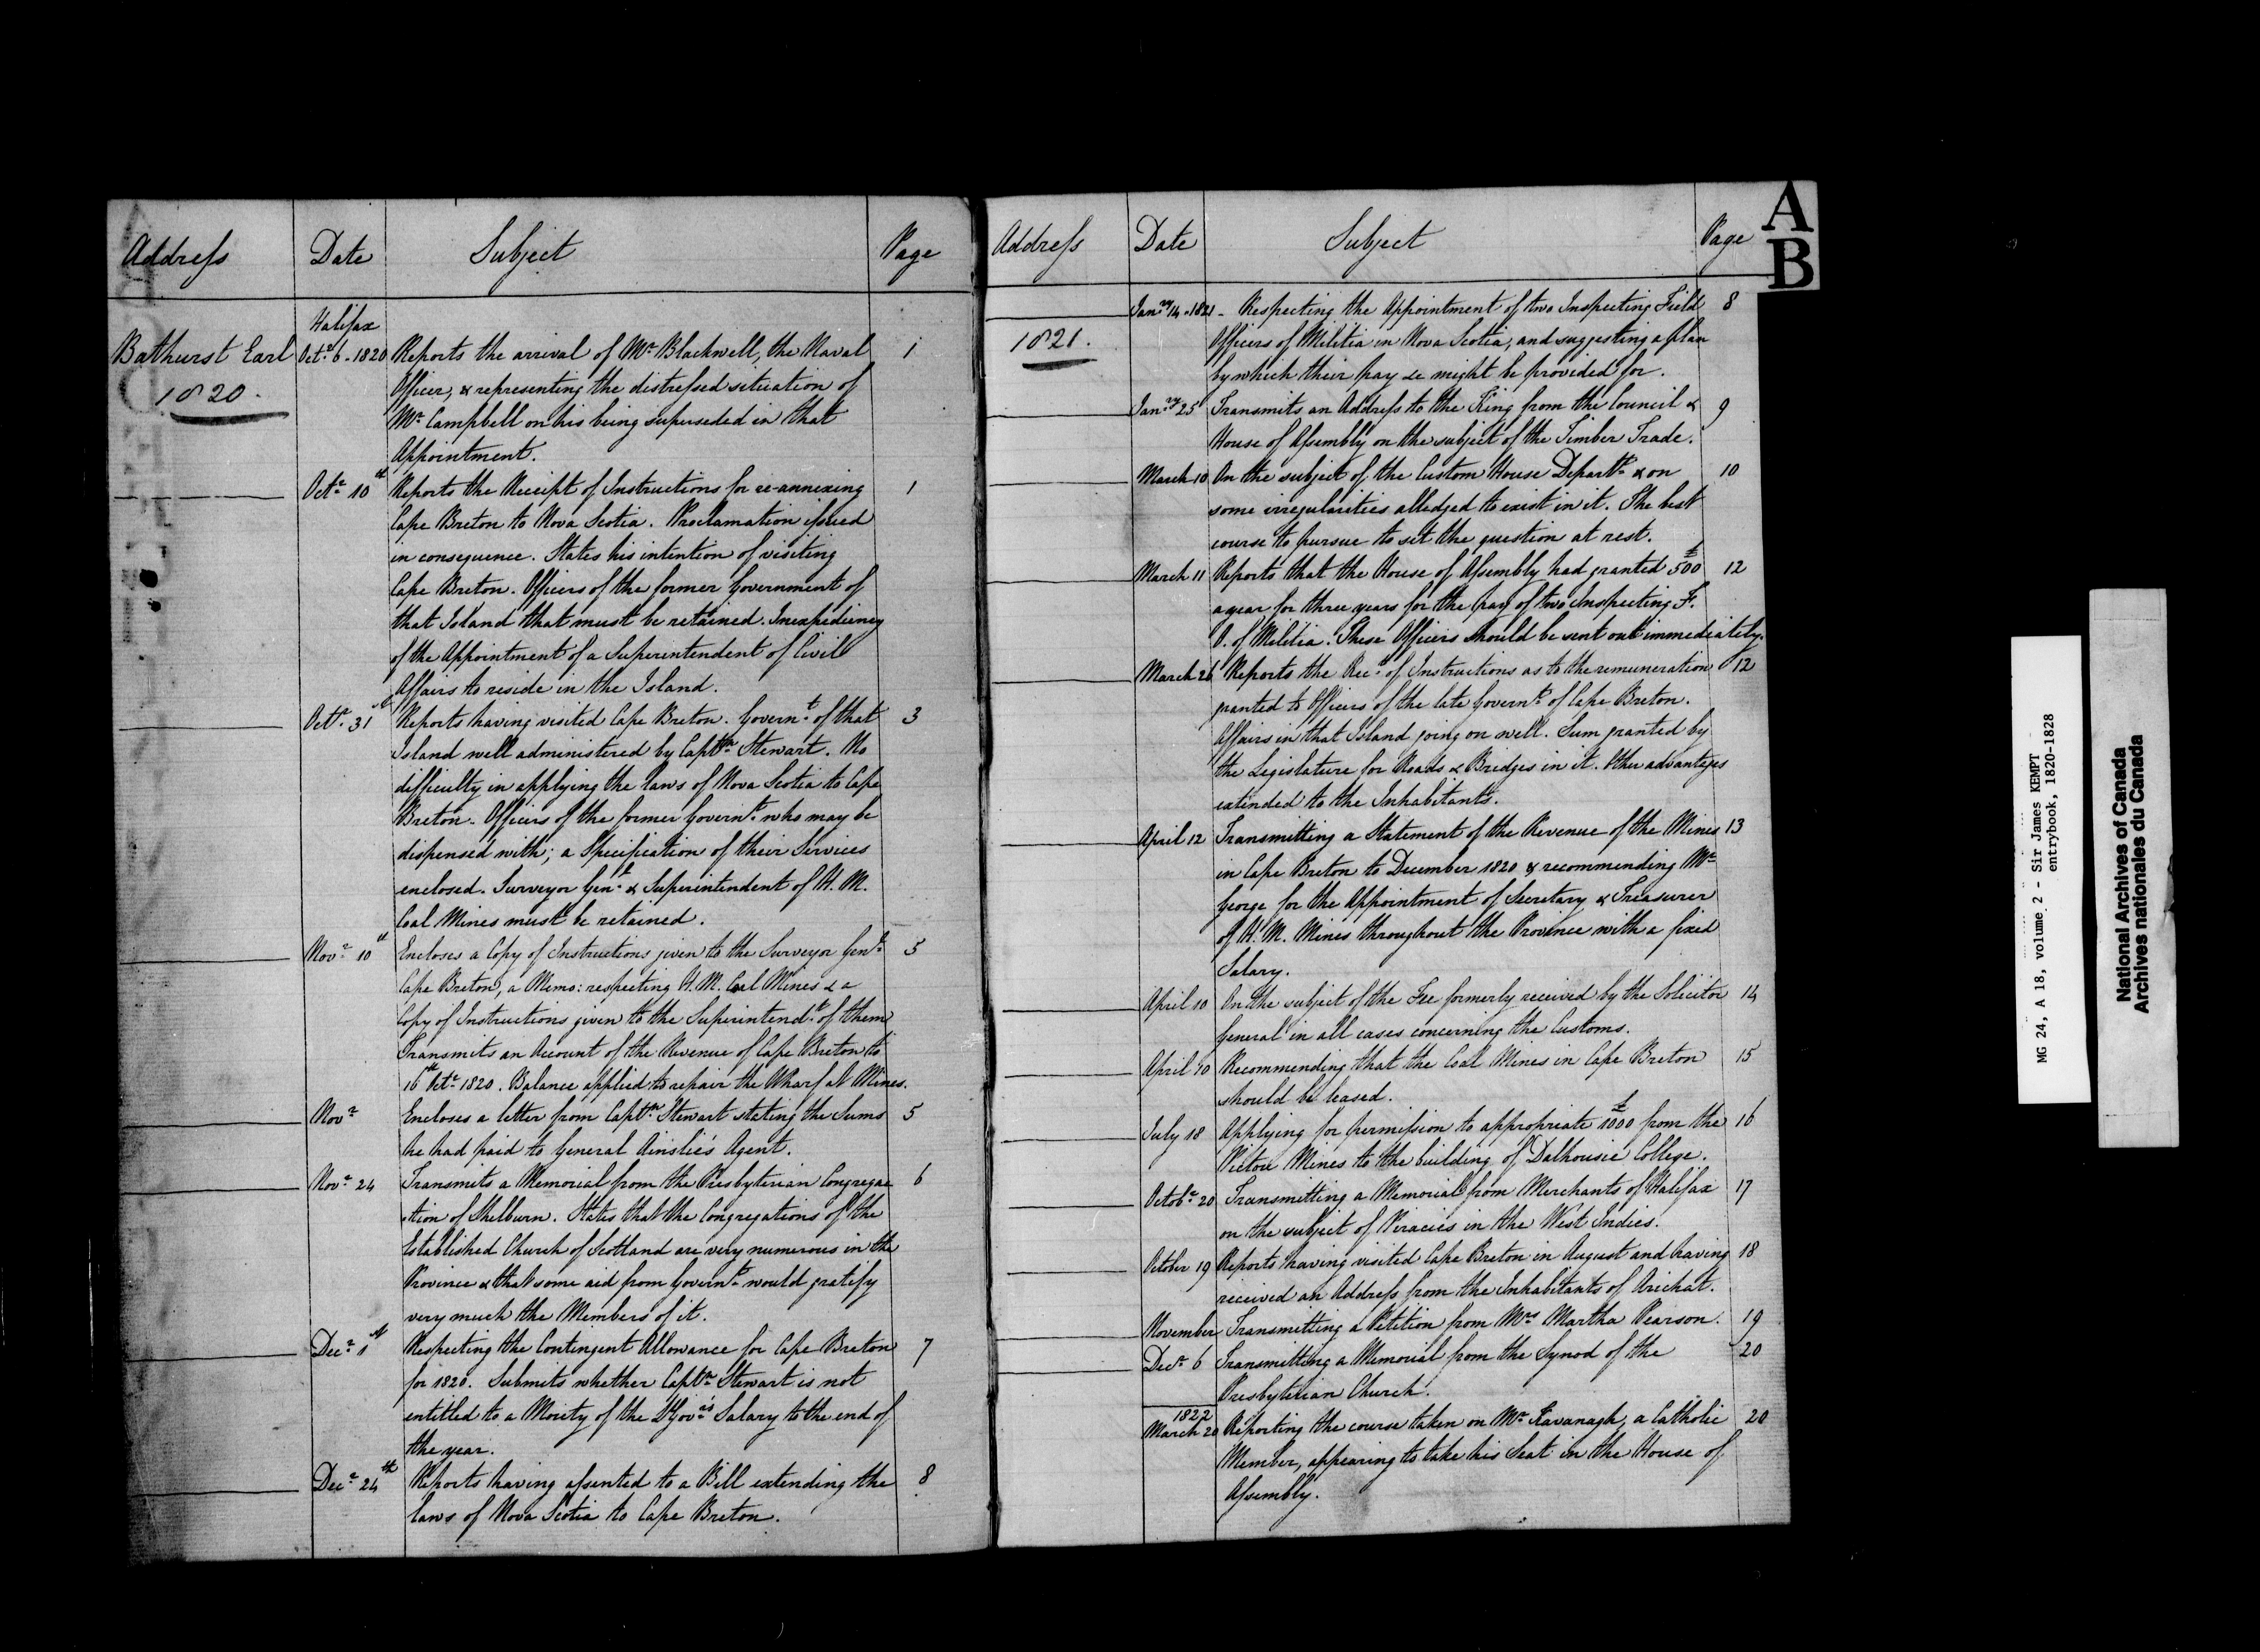 Address Date Subject Page
Halifax
Bathurst Earl Octr. 6 - 1820 Reports the arrival of Mr. Blackwell, the Naval 1
1820. Officer, & representing the distressed situation of
Mr. Campbell on his being superseded in that
Appointment.
Octr. 10th Reports the Receipt of Instructions for re-annexing 1
Cape Breton to Nova Scotia. Proclamation issued
in consequence. States his intention of visiting
Cape Breton. Officers of the former Government of
that Island that must be retained. Inexpediency
of the Appointment of a Superintendent of Civil
Affairs to reside in the Island.
Octr. 31st Reports having visited Cape Breton. Governt. of that 3
Island well administered by Captn. Stewart. No
difficulty in applying the laws of Nova Scotia to Cape
Breton. Officers of the former Governt. who may be
dispensed with; a Specification of their Services
enclosed. Surveyor Genl. & Superintendent of H. M.
Coal Mines must be retained.
Novr. 10th Encloses a Copy of Instructions given to the Surveyor Genl. 5
Cape Breton, a Memo: respecting H. M. Coal Mines & a
Copy of Instructions given to the Superintendt. of them
Transmits an Account of the Revenue of Cape Breton to
16th Octr. 1820. Balance applied to repair the Wharf at Mines.
Novr. Encloses a letter from Captn. Stewart stating the Sums 5
he had paid to General Ainslie's Agent.
Novr. 24 Transmits a Memorial from the Presbyterian Congrega 6
tion of Shelburn. States that the Congregations of the
Established Church of Scotland are very numerous in the
Province & that some aid from Governt. would gratify
very much the Members of it.
Decr. 1st Respecting the Contingent Allowance for Cape Breton 7
for 1820. Submits whether Captn. Stewart is not
entitled to a Moiety of the Lt Govr's. Salary to the end of
the year.
Decr. 24th Reports having assented to a Bill extending the 8
laws of Nova Scotia to Cape Breton.
A
B
Address Date Subject Page
Janry. 14 - 1821 - Respecting the Appointment of two Inspecting Field 8
1821. Officers of Militia in Nova Scotia, and suggesting a plan
by which their pay &c might be provided for.
Janry. 25 Transmits an Address to the King from the Council & 9
House of Assembly on the subject of the Timber Trade.
March 10 On the subject of the Custom House Departt. & on 10
some irregularities alledged to exist in it. The best
course to pursue to set the question at rest.
March 11 Reports that the House of Assembly had granted £500 12
a year for three years for the pay of two Inspecting F.
O. of Militia. These Officers should be sent out immediately.
March 26 Reports the Rect. of Instructions as to the remuneration 12
granted to Officers of the late Governt. of Cape Breton.
Affairs in that Island going on well. Sum granted by
the Legislature for Roads & Bridges in it. Other advantages
extended to the Inhabitants.
April 12 Transmitting a Statement of the Revenue of the Mines 13
in Cape Breton to December 1820 & recommending Mr.
George for the Appointment of Secretary & Treasurer
of H. M. Mines throughout the Province with a fixed
Salary.
April 10 On the subject of the Fee formerly received by the Solicitor 14
General in all cases concerning the Customs.
April 10 Recommending that the Coal Mines in Cape Breton 15
should be leased.
July 18 Applying for permission to appropriate £1000 from the 16
Pictou Mines to the building of Dalhousie College.
Octobr. 20 Transmitting a Memorial from Merchants of Halifax 17
on the subject of Piracies in the West Indies.
October 19 Reports having visited Cape Breton in August and having 18
received an Address from the Inhabitants of Arichat.
November Transmitting a Petition from Mrs. Martha Pearson. 19
Decr. 6 Transmitting a Memorial from the Synod of the 20
Presbyterian Church.
1822
March 20 Reporting the course taken on Mr. Kavanagh, a Catholic 20
Member, appearing to take his Seat in the House of
Assembly.
MG 24, A 18, volume 2 - Sir James KEMPT
entrybook, 1820-1828
National Archives of Canada
Archives nationales du Canada